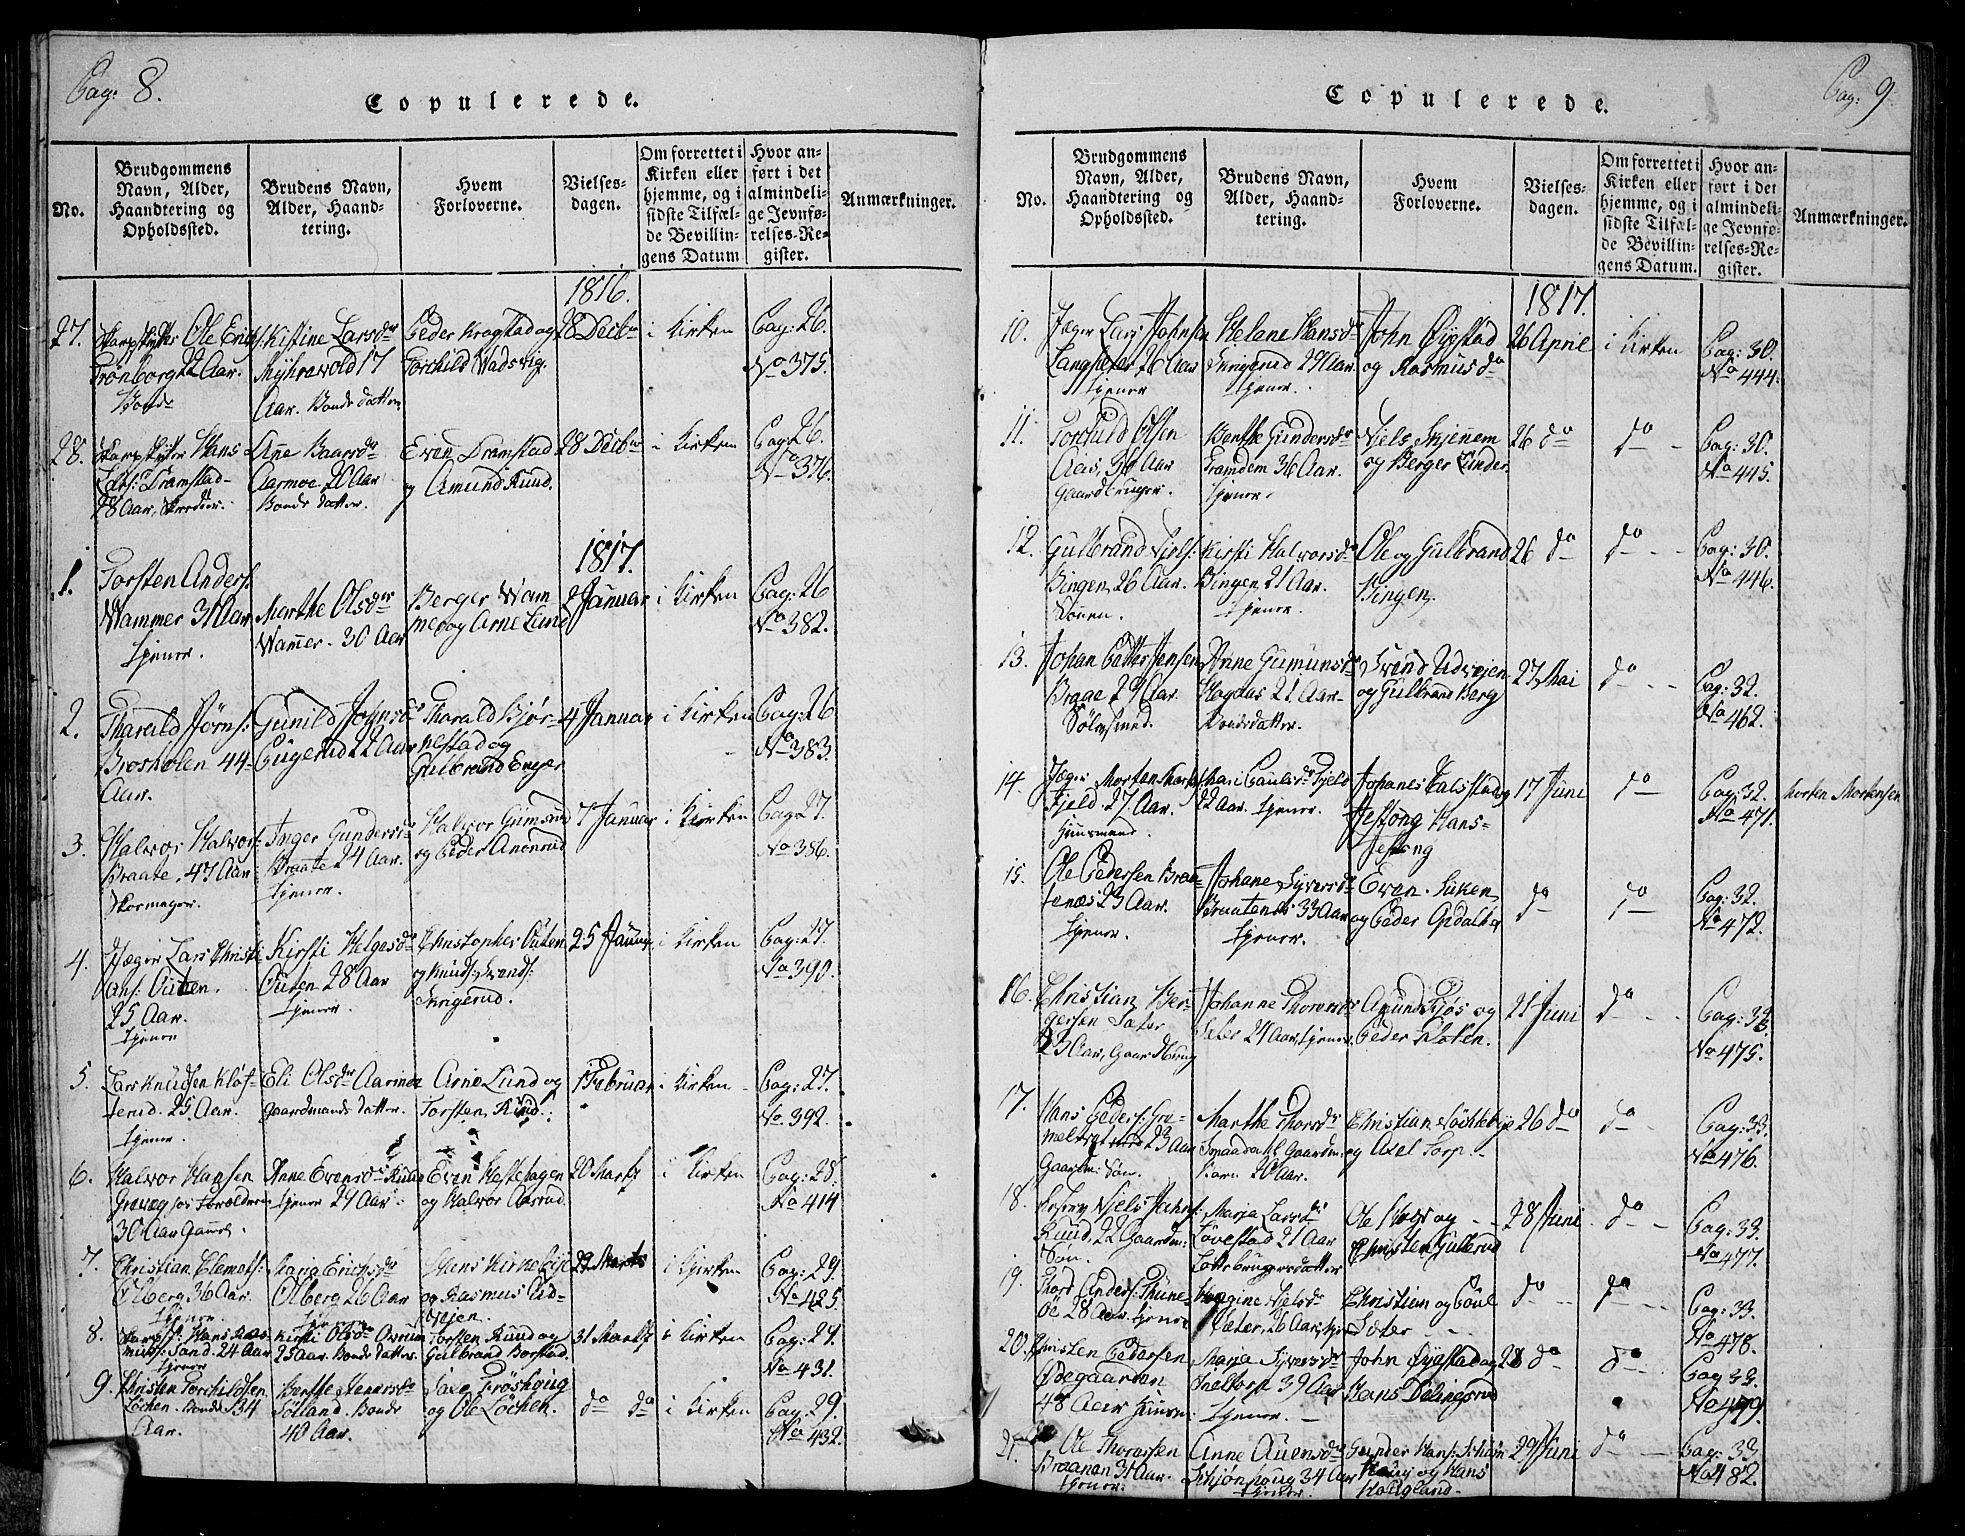 Pag: 8.
Copulerede.
No.
Brudgommens
Navn, Alder,
Haandtering og
Opholdssted.
Brudens Navn,
Alder, Haand-
tering.
Hvem
Forloverne.
Vielses-
dagen.
Om forrettet i
Kirken eller
hjemme, og i
sidste Tilfæl-
de Bevillin-
gens Datum
Hvor an-
ført i det
almindeli-
ge Jevnfø-
relses-Re-
gister.
Anmærkninger.
1816.
27.
Ole
22 Aar.
Kistine Larsdr
Myhrwold 17
Aar. Bonde datter
Peder Krogstad og
Torchild Wadsvig.
28 Decbr
i Kirken
Pag: 26.
No 375.
28.
Hans
Lars: Dramstad
28 Aar,
Ane Baarsdr
Aarmoe 20 Aar
Bonde datter.
Even Dramstad
og Amund Ruud.
28 Decbr
i Kirken
Pag: 26.
No 376.
1817.
1.
Torsten Anders:
Wammer 31 Aar
tjener.
Marthe Olsdr
Wammer. 30 Aar
Berger Wam
mer og Arne Lund
2 Januar
i Kirken
Pag: 26
No 382.
2.
Tharald Jörns:
Brosholen 44
Aar.
Gunild Johnsdr
22 Aar
Tharald Bjør-
nestad og
Gulbrand Enger
4 Januar
i Kirken
Pag: 26
No 383.
3.
Halvor Halvors:
Braate. 47 Aar
Skomager.
Inger Gundersdr
Braate 24 Aar.
tjener.
Halvor Gumsrud
og Peder
7 Januar
i Kirken
Pag 27.
No 386.
4.
Jæger Lars Christi
ans: Outen.
25 Aar.
tjener
Kirsti Helgesdr
Outen 28 Aar
tjener.
Christopher Outen
og Knud Svends:
Svngerud.
25 Januar
i Kirken
Pag: 27.
No 390.
5.
Lars Knudsen Kløf-
terud. 25 Aar.
tjener.
Eli Olsdr Aarmoe
gaardmands datter.
Arne Lund og
Torsten Ruud.
1 Februar
i Kirken
Pag: 27.
No 392.
6.
Halvor Hansen
30 Aar Gamel
Anne Evensdr Ruud
tjener 27 Aar.
Even Hestehagen
og Halvor Aasrud.
20 Marts
i Kirken
Pag: 28.
No 414
7.
Christian Clemets:
Ølberg 36 Aar.
tjener.
Maria Erichsdr
Ølberg 26 Aar
Hans Kirkebye
og Rasmus Ud-
vejen.
29 Marts
i Kirken
Pag: 29.
No 425.
8.
Hans Ras-
mus: Sand. 24 Aar
tjener
Kirsti Olsdr
25 Aar. Bonde datter.
Torsten Ruud og
Gulbrand Borstad.
31 Marts
i Kirken
Pag: 29.
No 431.
9.
Christen Torchildsen
Løchen. Bonde 34
Aar.
Berthe
Sølland. Bonde
40 Aar.
og Ole Løchen.
do do
i Kirken
Pag: 29.
No 432.
Pag: 9
Copulerede.
No.
Brudgommens
Navn, Alder,
Haandtering og
Opholdssted.
Brudens Navn,
Alder, Haand-
tering.
Hvem
Forloverne.
Vielses-
dagen.
Om forrettet i
Kirken eller
hjemme, og i
sidste Tilfæl-
de Bevillin-
gens Datum.
Hvor an-
ført i det
almindeli-
ge Jevnfø-
relses-Re-
gister.
Anmærkninger.
1817.
10.
Jæger Lars Johnsen
26 Aar
tjener
Helane Hansdr
Svngerud 29 Aar.
tjener.
John Øygstad
og Rasmus do
26 April
i Kirken
Pag: 30.
No 444.
11.
Torchild Olsen
Aas, 36 Aar
Gaardbruger.
Berthe Gundersdr
Framdem 36 Aar.
tjener.
Niels Skjenem
og Berger Linder
26 do
do
Pag: 30.
No 445.
12.
Gulbrand Niels:
Bingen, 26 Aar.
Kirsti Halvorsdr
Bingen, 21 Aar.
tjener.
Ole og Gulbrand
Bingen.
26 do
do
Pag: 30.
No 446.
13.
Johan Petter Jensen
Braae 29 Aar.
Sølvsmed.
Anne Gumunsdr
Haguus 21 Aar.
Bondedatter.
Svend Udvejen
og Gulbrand Berg
27 Mai
do
Pag: 32.
No 462.
14.
Jæger Morten
Fjeld. 27 Aar.
Huusmand.
Mari Poulsdr Fjeld
22 Aar. tjener.
Johanes Falsstad og
Jestong Hans-
Jestong
17 Juni
do
Pag: 32.
No 471.
Morten Mortensen
15.
Ole Pedersen Braa-
tenæs 23 Aar.
tjener.
Johane Syversdr
Braatenæs 33 Aar
tjener.
Even
og Peder Opdalten
do
do
Pag: 32.
No 472.
16.
Christian Ber-
gersen Sæter
23 Aar, Gaardbrug
Johanne Thoresdr
Sæter 24 Aar, tjener.
Amund Fjøs og
Peder Floten.
21 Juni
do
Pag: 33.
No 475.
17.
Hans Peders:
23 Aar
Gaardm: Søn.
Marthe Thorsdr
Gaardm:
Barn 20 Aar.
Christian
og Axel Torp.
26 do
do
Pag: 33.
No 476.
18.
Niels Johns:
Ruud, 22 Gaardm:
Søn.
Marja Larsdr
Løvestad 21 Aar
Ole Hoys og
Christen Gullerud
28 Juni
do
Pag: 33.
No 477.
19.
Thord Anders: Thune-
øe 28 Aar. tjener
Hagine Nielsdr
Sæter, 26 Aar, tjener
Christian og Poul
Sæter
do
do
Pag: 33.
No 478.
20.
Christen Pedersen
Ødegaarden
48 Aar Huusm:
Marja Syversdr
39 Aar
tjener.
John Øygstad og
Hans Dølingsrud
28 do
do
Pag 33.
No 479.
21.
Ole Thorassen
Braanen 31 Aar.
tjener
Anne Auensdr
Schjønhaug 34 Aar
tjener.
Gunder Hans: Schjøn
haug og Hans
Haugland.
29 Juni
do
Pag: 33.
No 482.